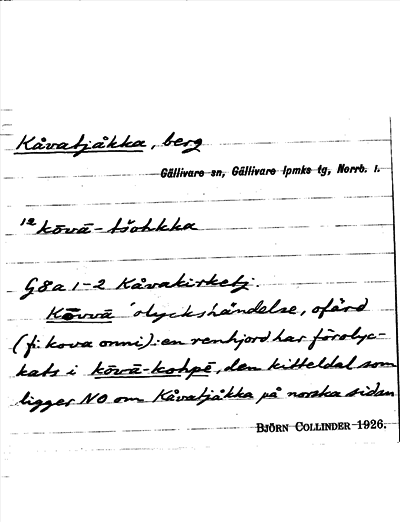 Kåvatjåkka, berg
Gällivare sn, Gällivare lpmks tg, Norrb. l.
12 kōvā-tšohkka
G8a 1-2 Kåvakirketj.
Kōvvā 'olyckshändelse, ofärd
(fi: kova onni).: en renhjord har förolyc-
kats i kōvā-kohpē, den kitteldal som
ligger NO om Kåvatjåkka på norska sidan
BJÖRN COLLINDER 1926.